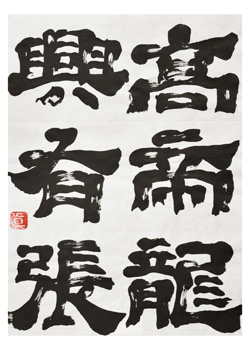 高帝龍
興有張